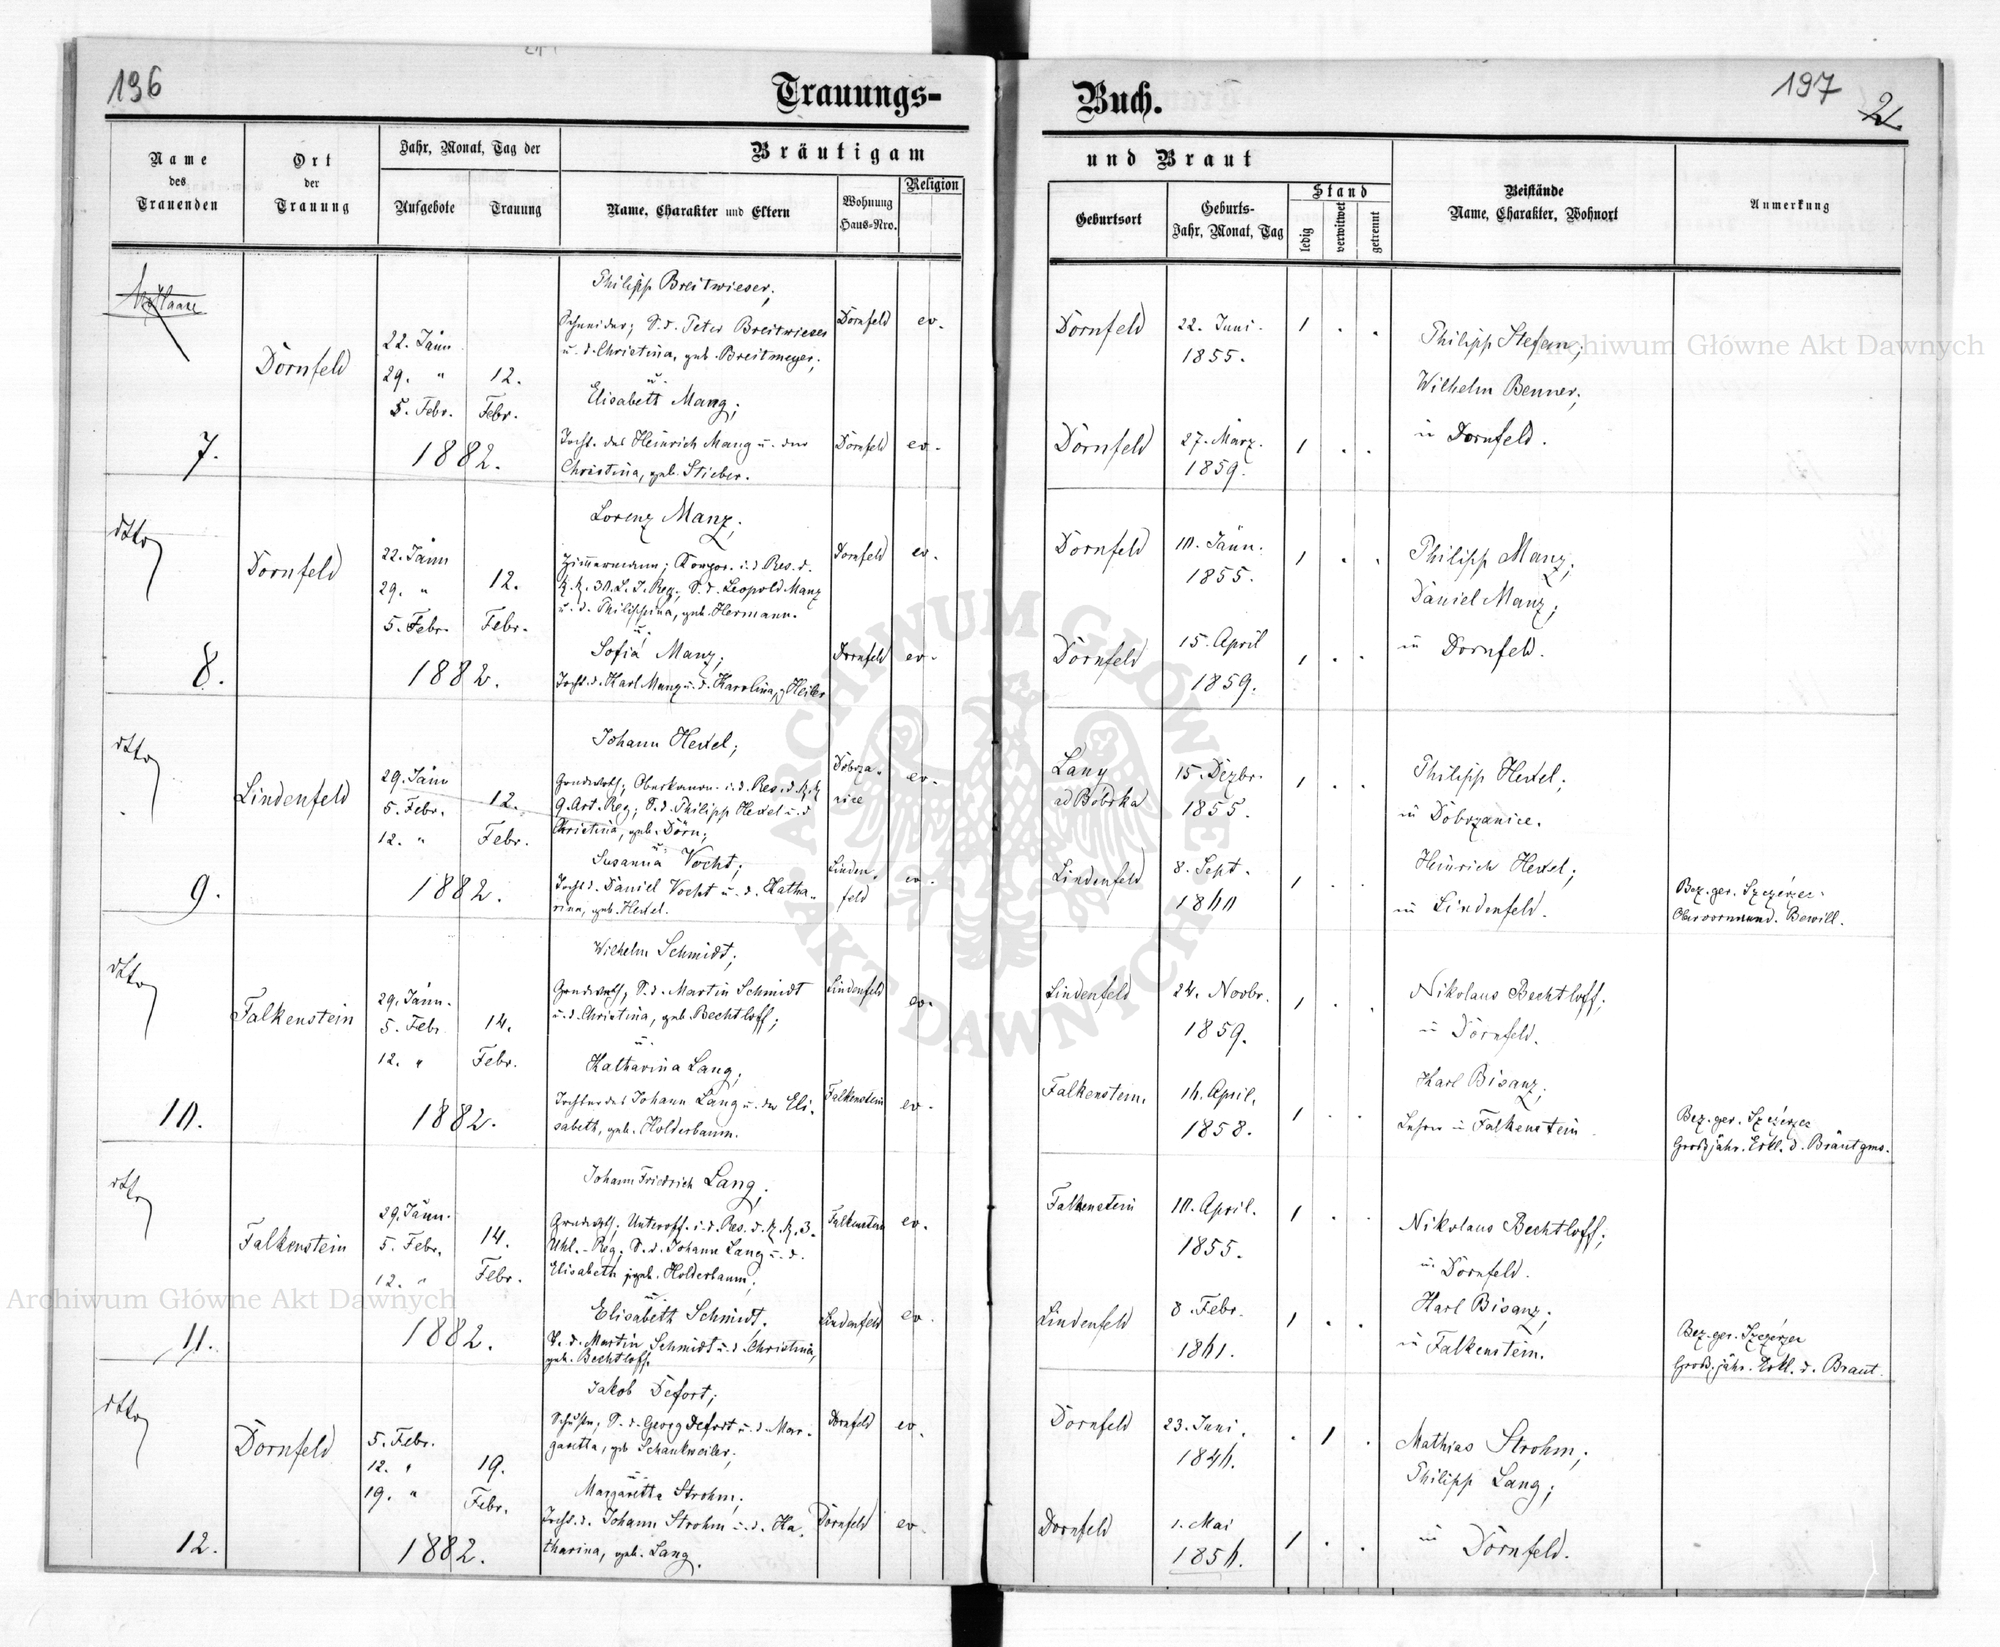 196
Trauungs-
Buch.
197
2.
Name
des
Trauenden
Ort
der
Trauung
Jahr, Monat, Tag der
Aufgebote
Trauung
Bräutigam
Name, Charakter und Eltern
Wohnung
Haus-Nro.
Religion
und Braut
Geburtsort
Geburts-
Jahr, Monat, Tag
Stand
ledig
verwitwet
getrennt
Beistände
Name, Charakter, Wohnort
Anmerkung
7.
Dornfeld
22. Jänn
29. "
5. Febr.
12.
Febr.
1882.
Philipp Breitwieser,
Schneider; S. d. Peter Breitwieser
u. d. Christina, geb. Breitmeyer;
u.
Elisabett Mang;
Tocht. des Heinrich Mang u. der
Christina, geb. Stieber.
Dornfeld ev.
Dornfeld ev.
Dornfeld
22. Juni.
1855.
1 . .
Dornfeld
27. März.
1859.
1 . .
Philipp Stefan;
Wilhelm Benner;
in Dornfeld.
dtto
8.
Dornfeld
22. Jänn
29. "
5. Febr.
12.
Febr.
1882.
Lorenz Manz,
Zimmermann; Korpor. i. d. Res. d.
k. k. 30. L. I. Reg., S. d. Leopold Manz
u. d. Philippina, geb. Hermann.
u.
Sofia Manz,
Tocht. d. Karl Manz u. d. Karolina, g. Heiler
Dornfeld ev.
Dornfeld ev.
Dornfeld
10. Jänn.
1855.
1 . .
Dornfeld
15. April
1859.
1 . .
Philipp Manz,
Daniel Manz;
in Dornfeld.
dtto
9.
Lindenfeld
29. Jänn
5. Febr.
12. "
12.
Febr.
1882.
Johann Hexel;
Grundwirth; Oberkanon. i. d. Res. d. k. k.
9. Art. Reg; S. d. Philipp Hexel u. d.
Christina, geb. Dörn;
u.
Susanna Vocht;
Tocht. d. Daniel Vocht u. d. Katha-
rina, geb. Hexel.
Dobrza-
nice
ev.
Linden-
feld
ev.
Lany
ad Bobrka
15. Dezbr.
1855.
1 . .
Lindenfeld
8. Sept.
1860
1 . .
Philipp Hexel;
in Dobrzanice.
Heinrich Hexel;
in Lindenfeld.
Bez. ger. Szczerzec.
Obervormund. Bewill.
dtto
10.
Falkenstein
29. Jänn.
5. Febr.
12. "
14.
Febr.
1882.
Wilhelm Schmidt;
Grundwirth; S. d. Martin Schmidt
u. d. Christina, geb. Bechtloff;
u.
Katharina Lang;
Tochter des Johann Lang u. der Eli-
sabeth, geb. Holderbaum.
Lindenfeld
ev.
Falkenstein
ev.
Lindenfeld
24. Novbr.
1859.
1 . .
Falkenstein.
16. April.
1858.
1 . .
Nikolaus Bechtloff;
in Dornfeld.
Karl Bisanz;
Lehrer in Falkenstein
Bez. ger. Szczerzec
Großjähr. Erkl. d. Bräutgms.
dtto
11.
Falkenstein
29. Jänn.
5. Febr.
12. "
14.
Febr.
1882.
Johann Friedrich Lang;
Grundwirth; Unteroff. i. d. Res. d. k. k. 3.
Uhl.-Reg; S. d. Johann Lang u. d.
Elisabeth geb. Holderbaum;
u.
Elisabeth Schmidt.
T. d. Martin Schmidt u. d. Christina,
geb. Bechtloff.
Falkenstein
ev.
Lindenfeld
ev.
Falkenstein
10. April.
1855.
1 . .
Lindenfeld
8. Febr.
1861.
1 . .
Nikolaus Bechtloff;
in Dornfeld.
Karl Bisanz;
in Falkenstein.
Bez. ger. Szczerzec
Groß. jähr. Erkl. d. Braut.
dtto
12.
Dornfeld
5. Febr.
12. "
19. "
19.
Febr.
1882.
Jakob Defort;
Schust.; S. d. Georg Defort u. d. Mar-
garetta, geb. Schankweiler;
u.
Margaretta Strohm;
Tocht. d. Johann Strohm u. d. Ka-
tharina, geb. Lang.
Dornfeld
ev.
Dornfeld
ev.
Dornfeld
23. Juni.
1846.
. 1 .
Dornfeld
1. Mai
1856.
1 . .
Mathias Strohm;
Philipp Lang;
in Dornfeld.
Archiwum Główne Akt Dawnych
Archiwum Główne Akt Dawnych
ARCHIWUM GŁÓWNE AKT DAWNYCH